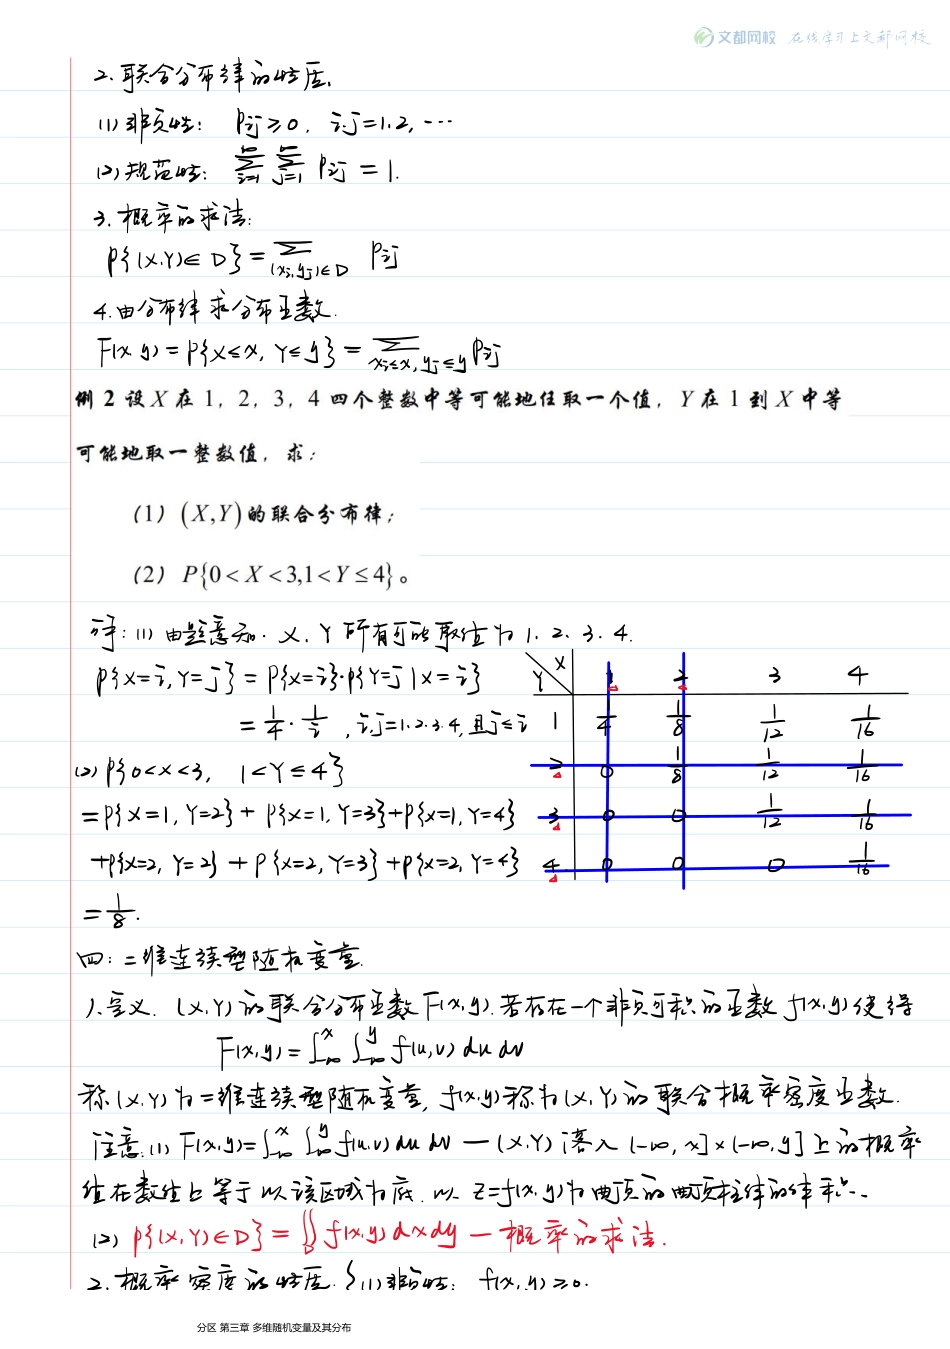 文都网校 在线学习上文都网校
2、联合分布律的性质.
(1) 非负性: Pij ≥ 0, i,j=1.2,…
(2) 规范性: ∑_{i=1}^{∞} ∑_{j=1}^{∞} Pij = 1.
3、概率的求法:
P{(X,Y)∈D} = ∑_{(xi,yj)∈D} Pij
4.由分布律求分布函数.
F(x,y) = P{X≤x, Y≤y} = ∑_{xi≤x, yj≤y} Pij
例 2 设 X 在 1, 2, 3, 4 四个整数中等可能地任取一个值, Y 在 1 到 X 中等
可能地取一整数值, 求:
(1) (X,Y)的联合分布律;
(2) P{0<X<3,1<Y≤4}。
解: (1) 由题意知. X、Y 所有可能取值为 1、2、3、4.
P{X=i, Y=j} = P{X=i}·P{Y=j|X=i}
= 1/4 · 1/i , i,j=1.2.3.4, 且j≤i
Y X 1 2 3 4
1 1/4 1/8 1/12 1/16
2 0 1/8 1/12 1/16
3 0 0 1/12 1/16
4 0 0 0 1/16
(2) P{0<X<3, 1<Y≤4}
=P{X=1, Y=2}+ P{X=1, Y=3}+P{X=1, Y=4}
+P{X=2, Y=2} + P{X=2, Y=3} +P{X=2, Y=4}
= 1/8.
四: 二维连续型随机变量.
1、定义. (X,Y)的联合分布函数F(x,y).若存在一个非负可积的函数 f(x,y)使得
F(x,y) = ∫_{-∞}^{x} ∫_{-∞}^{y} f(u,v) du dv
称(X,Y)为二维连续型随机变量, f(x,y)称为(X,Y)的联合概率密度函数.
注意.(1) F(x,y)=∫_{-∞}^{x} ∫_{-∞}^{y} f(u,v) du dv — (X,Y)落入 (-∞, x]×(-∞,y] 上的概率
值在数值上等于以该区域为底.以 z=f(x,y)为曲顶的曲顶柱体的体积.
(2) P{(X,Y)∈D} = ∬_D f(x,y) dxdy — 概率的求法.
2、概率密度的性质. { (1) 非负性: f(x,y)≥0.
分区 第三章 多维随机变量及其分布